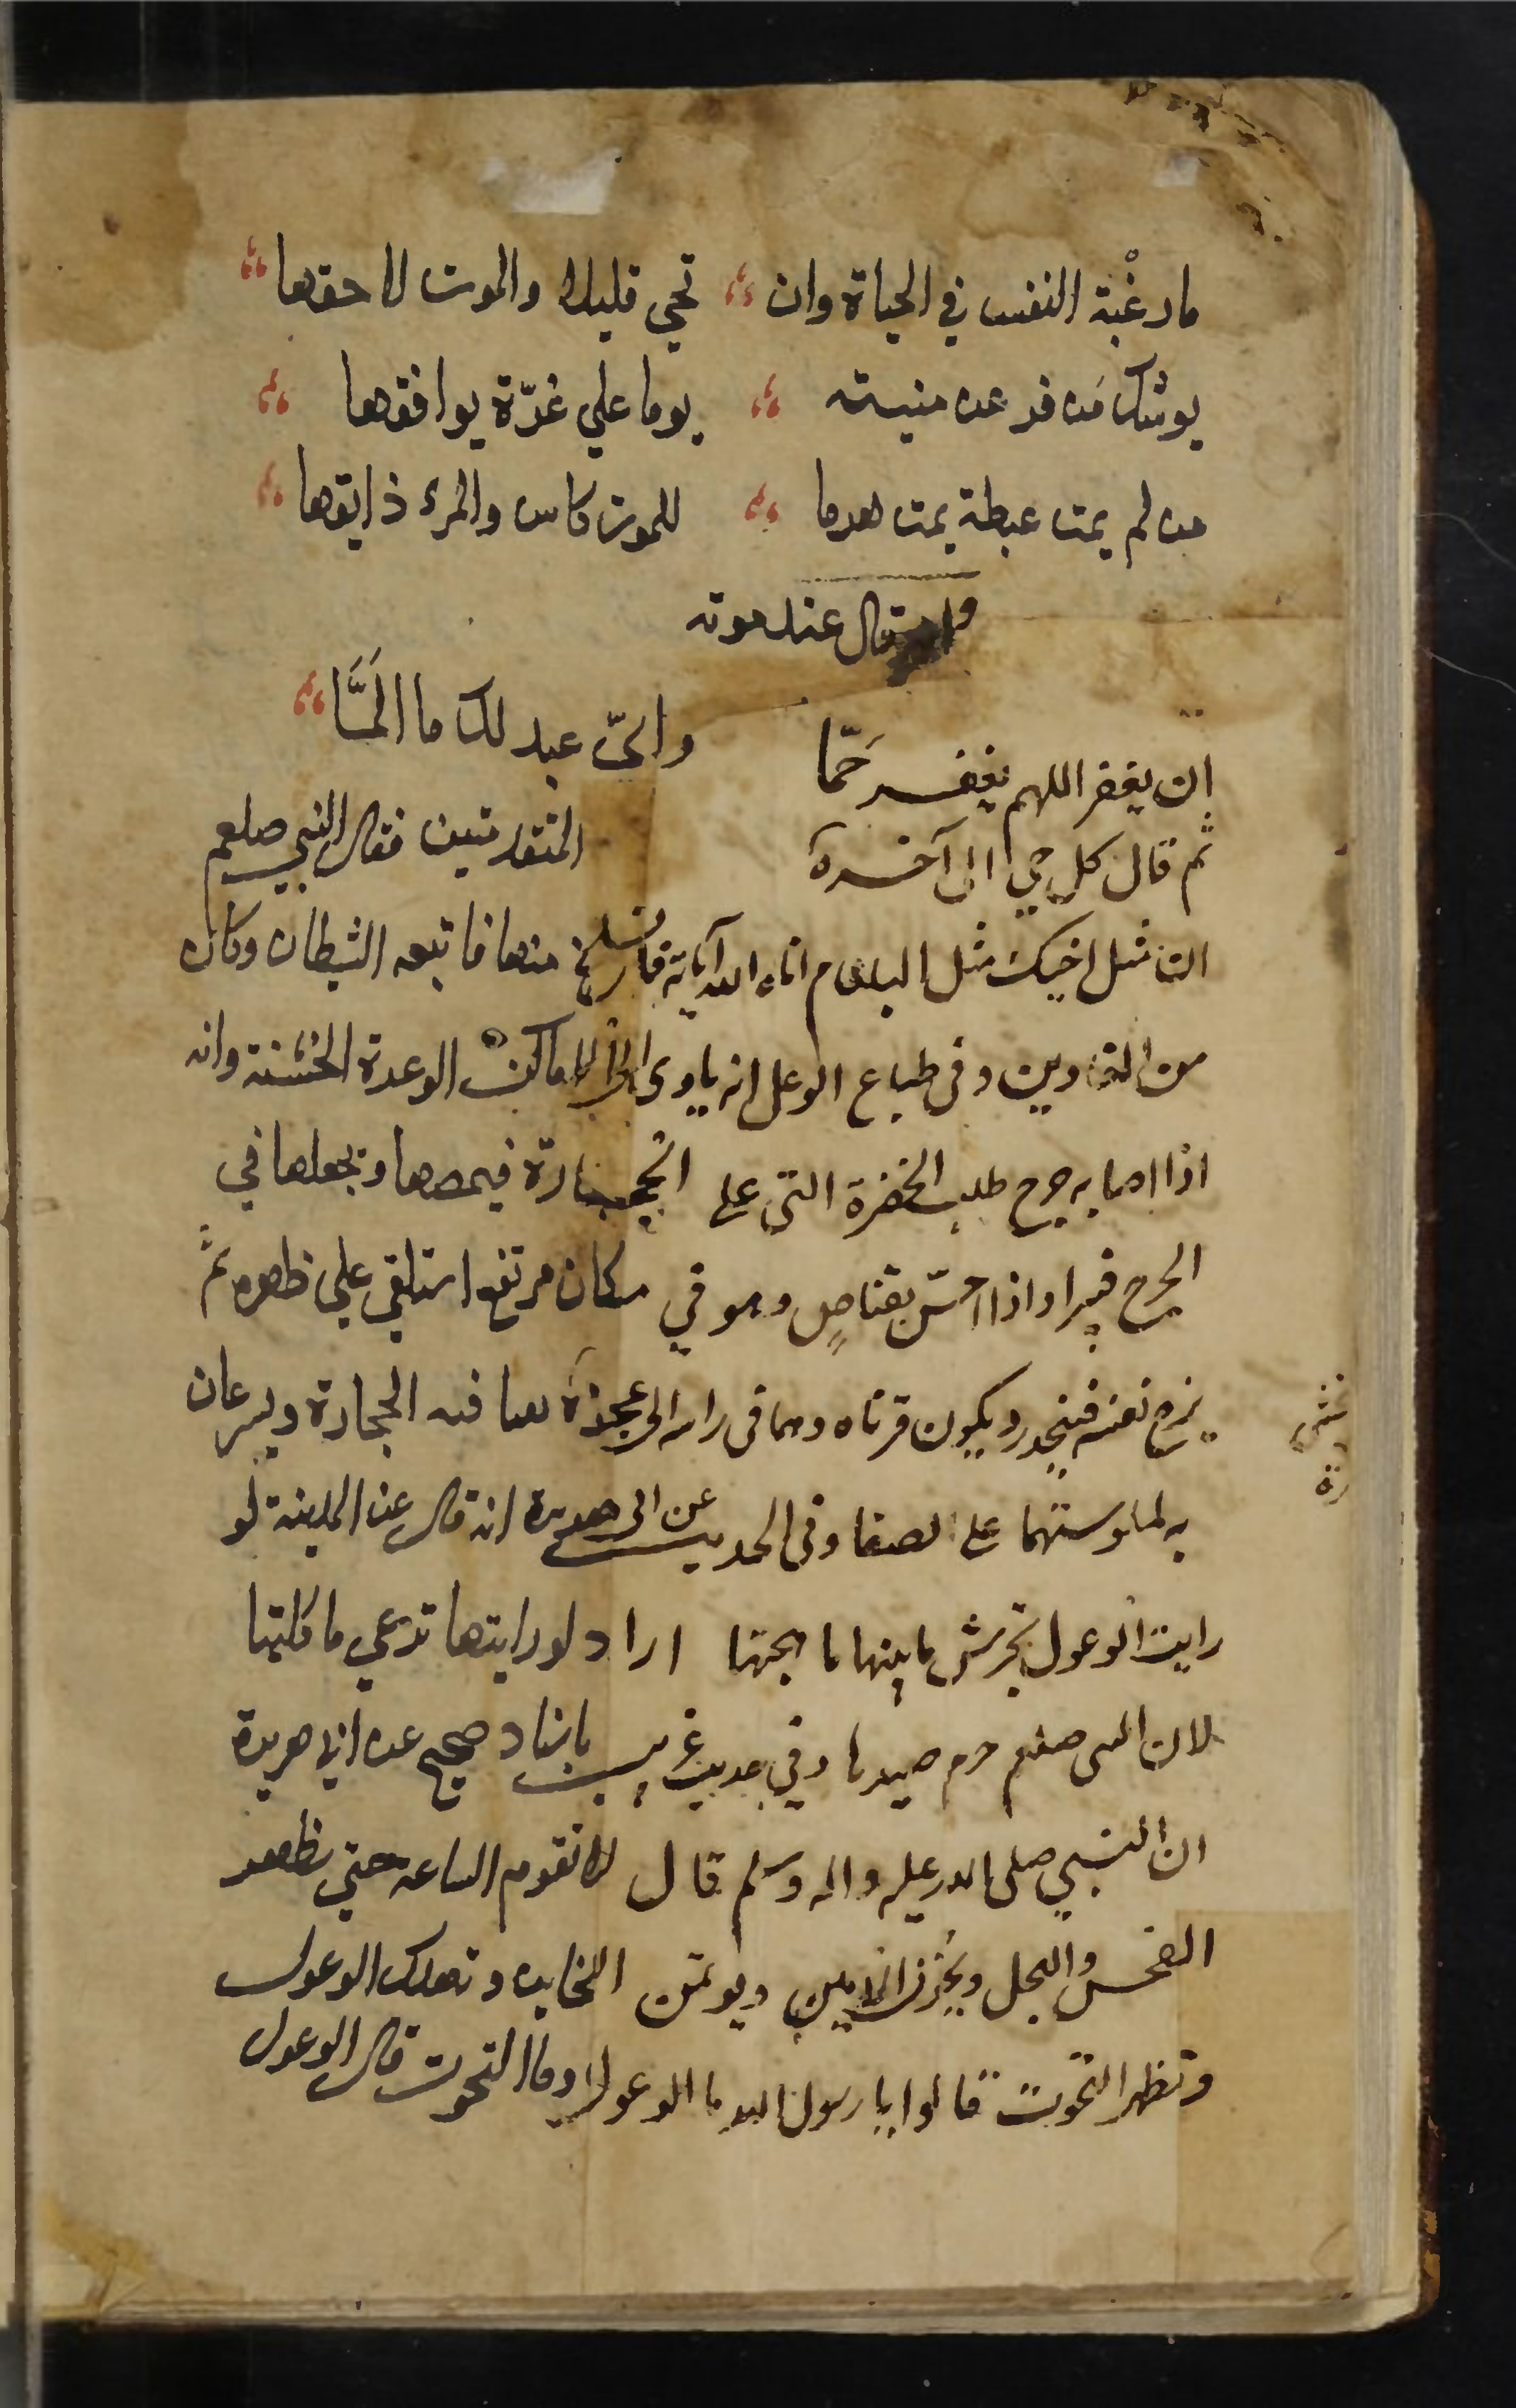 ما رغْبة النفس في الحياة وان تحي قليلا والموت لاحقها
يوشك مَن فر من منيته يوما علي غرّة يوافقها
من لم يمت عبطة يمت هرما للموت كاس والمرء ذايقها
وقال عند موته
ان يغفر اللهم يغفر جَمّا وايّ عبد لك ما المَّا
ثم قال كل حي الى آخره المتقدمتين فقال النبي صلعم
ان مثل اخيك مثل البلعام اتاه الله آياته فانسلخ منها فاتبعه الشيطان وكان
من الغاوين وفي طباع الوعل انه ياوى الى الاماكن الوعرة الخشنة وانه
اذا اصابه جرح طلب الخضرة التي على الحجارة فيمصها ويجعلها في
الجرح فيبرا واذا احسّ بقناصٍ وهو في مكان مرتفع استلقي علي ظهره ثم
يزج نفسه فينحدر ويكون قرناه وهما في راسه الى عجزه فيه الحجارة ويسرعان
به لملوستهما على الصفا وفي الحديث عن ابى هريرة انه قال عن المدينة لو
رايت الوعول تجرش ما بينها ما هجتها اراد لو رايتها ترعي ما كلتها
لان النبي صلعم حرم صيدها وفي حديث غريب باسناد صحيح عن ابى هريرة
ان النبي صلى الله عليه واله وسلم قال لا تقوم الساعة حتي يظهر
الفحش والبخل ويخون الامين ويوتمن الخاين وتهلك الوعول
وتظهر التحوت قالوا يا رسول الله ما الوعول وما التحوت قال الوعول